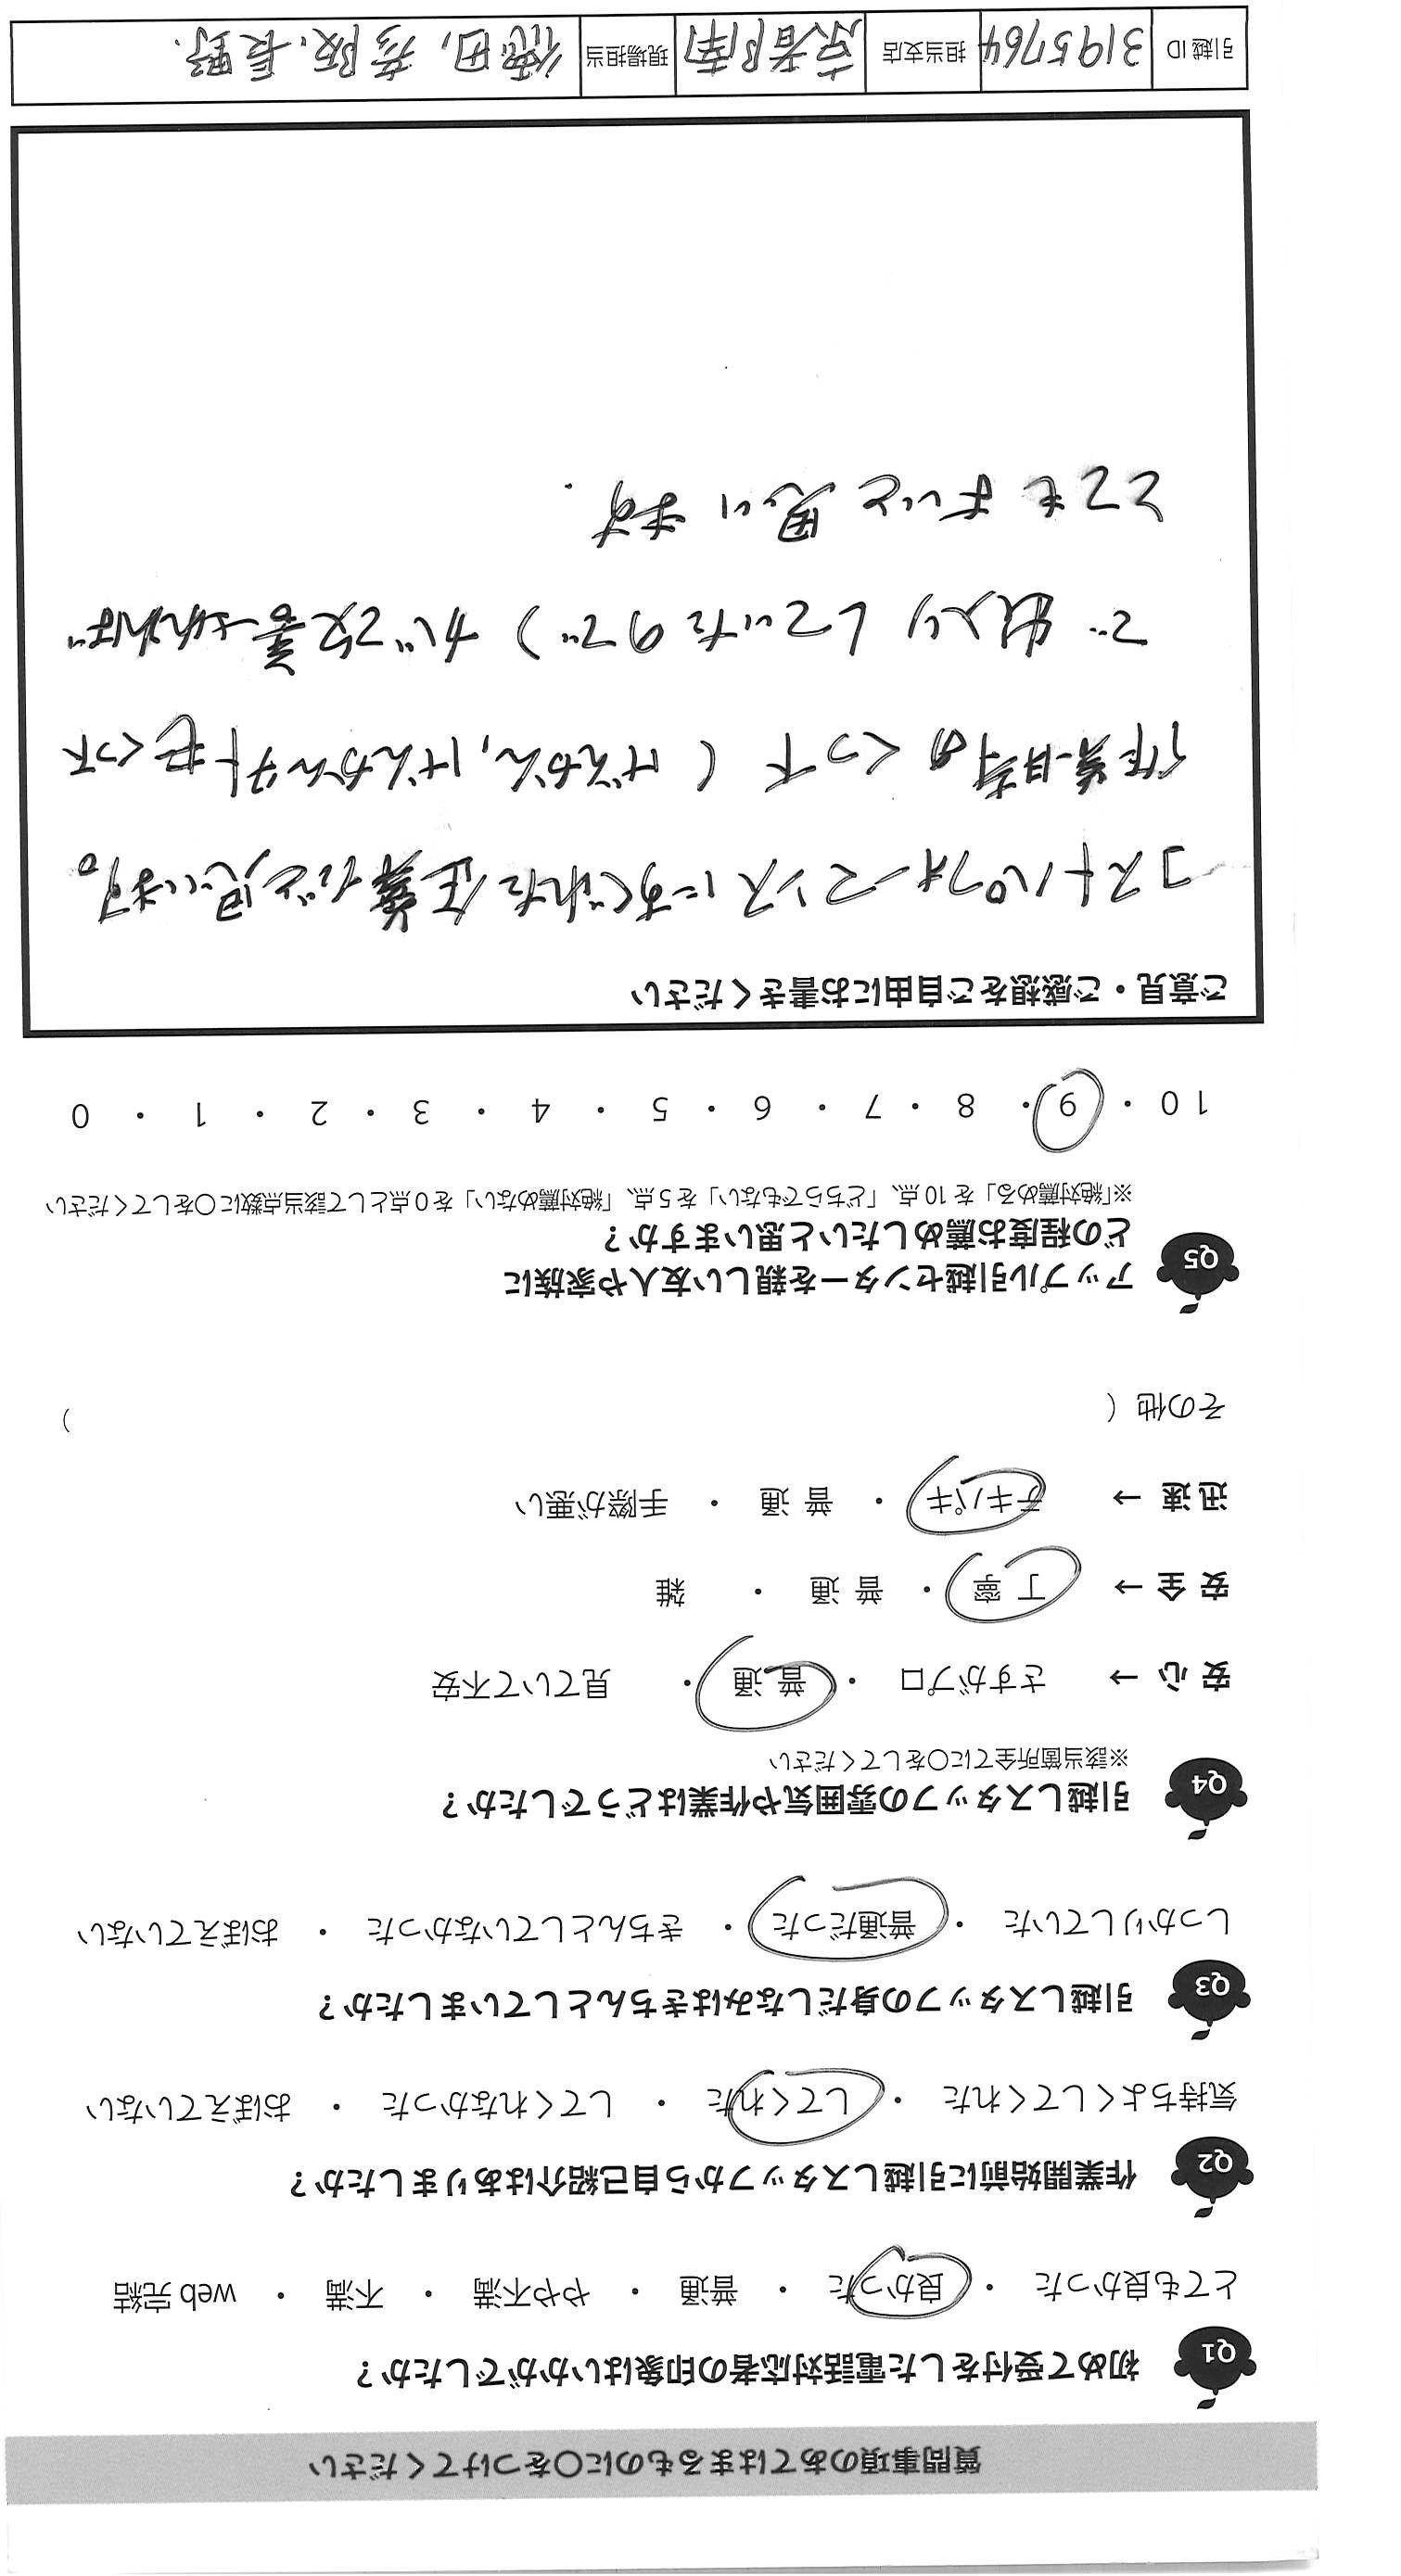 質問事項のあてはまるものに〇をつけてください
Q1 初めて受付をした電話対応者の印象はいかがでしたか？
とても良かった ・ 良かった ・ 普通 ・ やや不満 ・ 不満 ・ web 完結
Q2 作業開始前に引越しスタッフから自己紹介はありましたか？
気持ちよくしてくれた ・ してくれた ・ してくれなかった ・ おぼえていない
Q3 引越しスタッフの身だしなみはきちんとしていましたか？
しっかりしていた ・ 普通だった ・ きちんとしていなかった ・ おぼえていない
Q4 引越しスタッフの雰囲気や作業はどうでしたか？
※該当箇所全てに〇をしてください
安 心 → さすがプロ ・ 普 通 ・ 見ていて不安
安 全 → 丁 寧 ・ 普 通 ・ 雑
迅 速 → テキパキ ・ 普 通 ・ 手際が悪い
その他（ ）
Q5 アップル引越センターを親しい友人や家族に
どの程度お薦めしたいと思いますか？
※「絶対薦める」を 10 点、「どちらでもない」を 5 点、「絶対薦めない」を 0 点として該当点数に〇をしてください
10 ・ 9 ・ 8 ・ 7 ・ 6 ・ 5 ・ 4 ・ 3 ・ 2 ・ 1 ・ 0
ご意見・ご感想をご自由にお書きください
コストパフォーマンスにすぐれた企業だと思います。
作業時のくつ下（げんかん,げんかん外もくつ下
で出入りしていたので）が改善されれば
とてもよいと思います.
引越 ID 3195764 担当支店 京都南 現場担当 徳田, 彦阪, 長野.